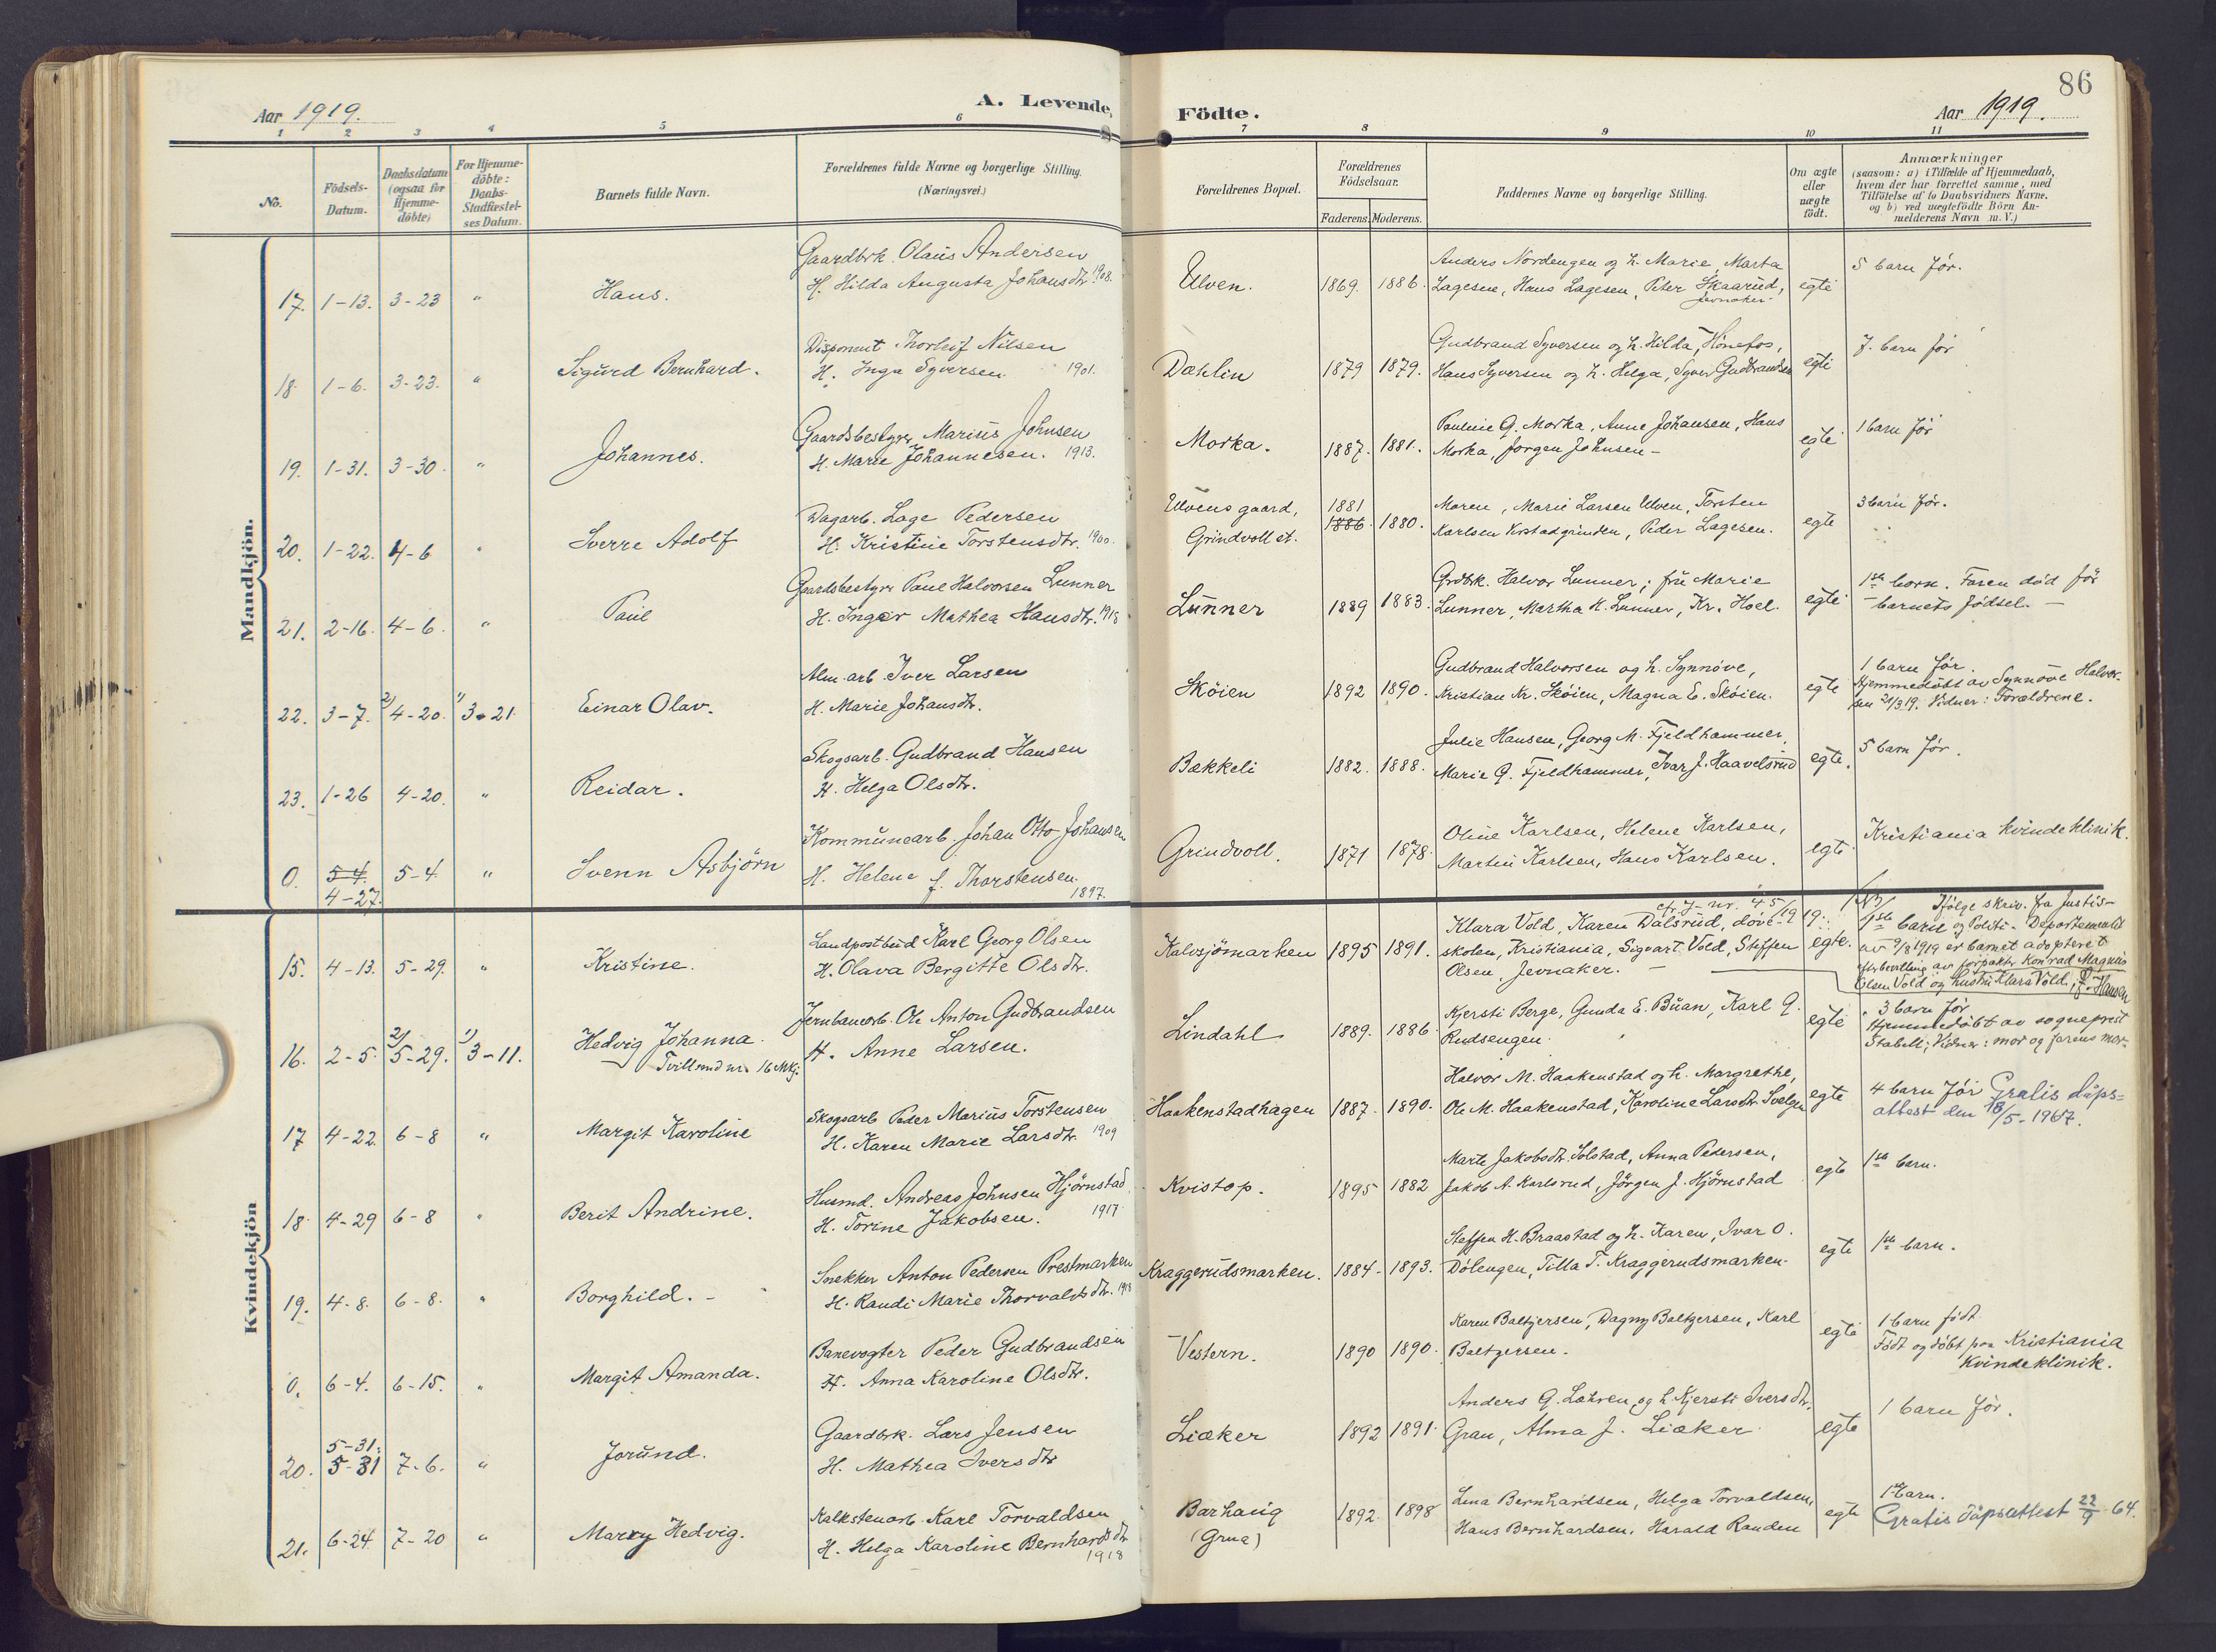 86
Aar 1919.
A. Levende
Födte.
Aar 1919.
1 2 3 4 5 6 7 8 9 10 11
No.
Födsels-Datum.
Daabsdatum (ogsaa for Hjemme-döbte)
For Hjemme-döbte: Daabs-Stadfæstel-ses Datum.
Barnets fulde Navn.
Forældrenes fulde Navne og borgerlige Stilling. (Næringsvei.)
Forældrenes Bopæl.
Forældrenes Födselsaar.
Faderens. Moderens.
Faddernes Navne og borgerlige Stilling.
Om ægte eller uægte födt.
Anmærkninger
(saasom: a) i Tilfælde af Hjemmedaab,
hvem der har forrettet samme, med
Tilföielse af to Daabsvidners Navne,
og b) ved uægtefödte Börn An-
melderens Navn m. V.)
Mandkjön.
17. 1-13. 3-23 " Hans.
Gaardbrk. Olaus Andersen
H. Hilda Augusta Johansdtr. 1908.
Ulven. 1869. 1886.
Anders Nordengen og h. Marie, Marta
Lagesen, Hans Lagesen, Peter Skaarud,
Jevnaker.
egte
5 barn før.
18. 1-6. 3-23. " Sigurd Bernhard.
Disponent Thorleif Nilsen
H. Inga Syversen 1901.
Dæhlin 1879 1879.
Gudbrand Syversen og h. Hilda, Hønefos,
Hans Syversen og h. Helga, Syver Gudbrandsen
egte
7. barn før
19. 1-31. 3-30. " Johannes.
Gaardsbestyrer Marius Johnsen
H. Marie Johannesen. 1913.
Morka. 1887. 1881.
Pauline G. Morka, Anne Johansen, Hans
Morka, Jørgen Johnsen -
egte
1 barn før
20. 1-22. 4-6 " Sverre Adolf
Dagarb. Lage Pedersen
H. Kristine Torstensdtr. 1900.
Ulvens gaard,
Grindvoll st.
1881
1886. 1880.
Maren, Marie Larsen Ulven, Torsten
Karlsen Korstadgrinden, Peder Lagesen.
egte
3 barn før.
21. 2-16. 4-6. " Paul
Gaardsbestyrer Paul Halvorsen Lunner
H. Inger Mathea Hansdtr. 1918
Lunner 1889 1883.
Grdbrk. Halvor Lunner; fru Marie
Lunner, Martha K. Lunner, Kr. Hoel.
egte
1ste barn. Faren død før
- barnets fødsel. -
22. 3-7. 2) 4-20. 1) 3-21. Einar Olav.
Alm. arb. Iver Larsen
H. Marie Johansdtr.
Skøien 1892 1890.
Gudbrand Halvorsen og h. Synnøve,
Kristian Kr. Skøien, Magna E. Skøien.
egte
1 barn før.
Hjemmedøbt av Synnøve Halvor-
sen 21/3 19. Vidner: Forældrene.
23. 1-26 4-20. " Reidar.
Skogsarb. Gudbrand Hansen
H. Helga Olsdtr.
Bækkeli 1882. 1888.
Julie Hansen, Georg M. Fjeldhammer,
Marie G. Fjeldhammer, Ivar J. Haavelsrud
egte.
5 barn før.
0. 5-4. 5-4. " Svenn Asbjörn
4-27.
Kommunearb. Johan Otto Johansen
H. Helene f. Thorstensen. 1897.
Grindvoll. 1871 1878.
Oline Karlsen, Helene Karlsen,
Martin Karlsen, Hans Karlsen.
egte
Kristiania kvindeklinik.
Kvindekjön
15. 4-13. 5-29. " Kristine.
Landpostbud Karl Georg Olsen
H. Olava Bergitte Olsdtr.
Kalvsjømarken 1895 1891.
cfr. J-nr. 45/1919.
Klara Vold, Karen Dalsrud, døve-
skolen, Kristiania, Sigvart Vold, Steffen
Olsen, Jevnaker. -
egte.
Ifølge skriv. fra Justis-
1ste barn og Politi-Departementet
av 9/8 1919 er barnet adopteret
efter bevilling av forpakter Konrad Magnus
Olsen Vold og hustru Klara Vold, f. Hansen
16. 2-5. 2) 5-29. 1) 3-11. Hedvig Johanna.
Tvill. med nr. 16 Mkj.
Jernbanearb. Ole Anton Gudbrandsen
H. Anne Larsen.
Lindahl 1889. 1886.
Kjersti Berge, Gunda E. Buan, Karl G.
Rudsengen.
egte
3 barn før
Hjemmedøbt av sogneprest
Stabell; Vidner: mor og farens mor.
17 4-22. 6-8 " Margit Karoline
Skogsarb. Peder Marius Torstensen
H. Karen Marie Larsdtr. 1909
Haakenstadhagen 1887. 1890.
Halvor M. Haakenstad og h. Margrethe,
Ole M. Haakenstad, Karoline Larsdtr. Svelgen
egte
4 barn før Gratis dåps=
attest den 18/5-1967.
18. 4-29 6-8 " Berit Andrine.
Husmd. Andreas Johnsen Hjörnstad
H. Torine Jakobsen. 1917.
Kvistop. 1895 1882
Marte Jakobsdtr. Solstad, Anna Pedersen,
Jakob A. Karlsrud, Jörgen J. Hjörnstad
egte
1ste barn.
19. 4-8. 6-8. " Borghild. -
Snekker Anton Pedersen Prestmarken
H. Randi Marie Thorvaldsdtr. 1918
Kraggerudsmarken. 1884- 1893.
Steffen H. Braastad og h. Karen, Ivar O.
Dölengen, Tilla T. Kraggerudsmarken.
egte
1ste barn.
0. 6-4. 6-15. " Margit Amanda.
Banevogter Peder Gudbrandsen
H. Anna Karoline Olsdtr.
Vestern. 1890 1890.
Karen Baltzersen, Dagny Baltzersen, Karl
Baltzersen.
egte
1 barn födt.
Födt og döbt paa Kristiania
Kvindeklinik.
5-31.
20. 5-31 7-6. " Jorund.
Gaardbrk. Lars Jensen
H. Mathea Iversdtr
Liæker 1892 1891.
Anders G. Løhren og h. Kjersti Iversdtr.
Gran, Alma J. Liæker
egte
1 barn før.
21. 6-24. 7-20 " Marry Hedvig.
Kalkstenarb. Karl Torvaldsen
H. Helga Karoline Bernhardsdtr
1918
Barhaug
(Grua)
1892. 1898
Lina Bernhardsen, Helga Torvaldsen,
Hans Bernhardsen, Harald Randen
egte
1ste barn.
Gratis dåpsattest 22/9-64.